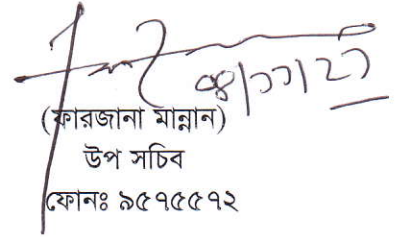 ০৪/১১/২১
(ফারজানা মান্নান)
উপ সচিব
ফোনঃ ৯৫৭৫৫৭২